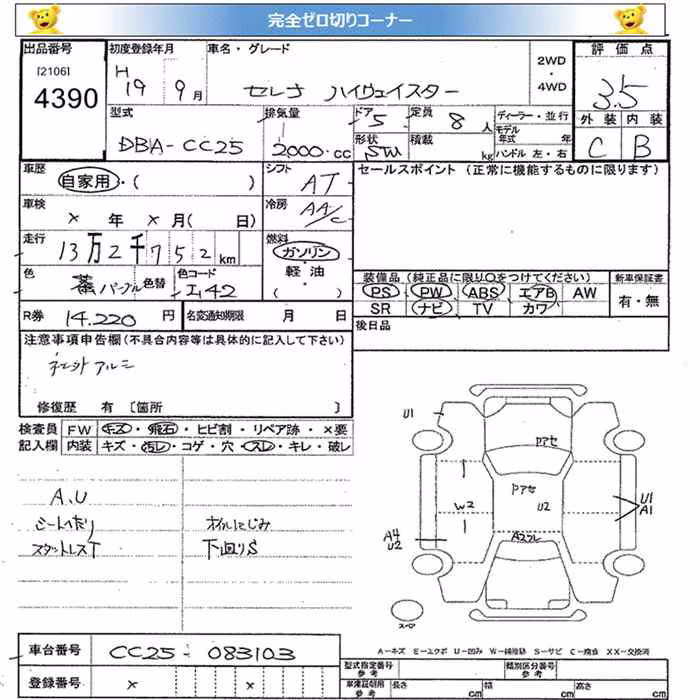 完全ゼロ切りコーナー
出品番号
[2106]
4390
初度登録年月
H19 9月
車名・グレード
セレナ ハイウェイスター
2WD
・
4WD
評価点
3.5
外装 内装
C B
型式
DBA-CC25
排気量
2000cc
ドア
5
形状
SW
定員
8人
積載
kg
ディーラー・並行
モデル年式 年
ハンドル 左・右
車歴
自家用・( )
シフト
AT
セールスポイント (正常に機能するものに限ります)
車検
× 年 × 月( 日)
冷房
AA/C
走行
13万2千752km
燃料
ガソリン
軽油
( )
色
パープル
色替
色コード
装備品 (純正品に限り○をつけてください)
PS PW ABS エアB AW
SR ナビ TV カワ
新車保証書
有・無
R券 14.220円
名変通知期限 月 日
後日品
注意事項申告欄(不具合内容等は具体的に記入して下さい)
アルミ
修復歴 有 [箇所 ]
検査員
記入欄
FW キズ・飛石・ヒビ割・リペア跡・×要
内装 キズ・汚レ・コゲ・穴・スレ・キレ・破レ
A.U
シートへたり
スタットレスT
オイルにじみ
下回りS
U1
Pアセ
Pアセ
U2
W2
U1
A1
A4
U2
Aスレ
スペア
A-キズ E-エクボ U-凹み W-補修跡 S-サビ C-腐食 XX-交換済
車台番号 CC25-083103
登録番号 × ×
型式指定番号
参考
類別区分番号
参考
車庫証明用
参考
長さ 幅 高さ
cm cm cm